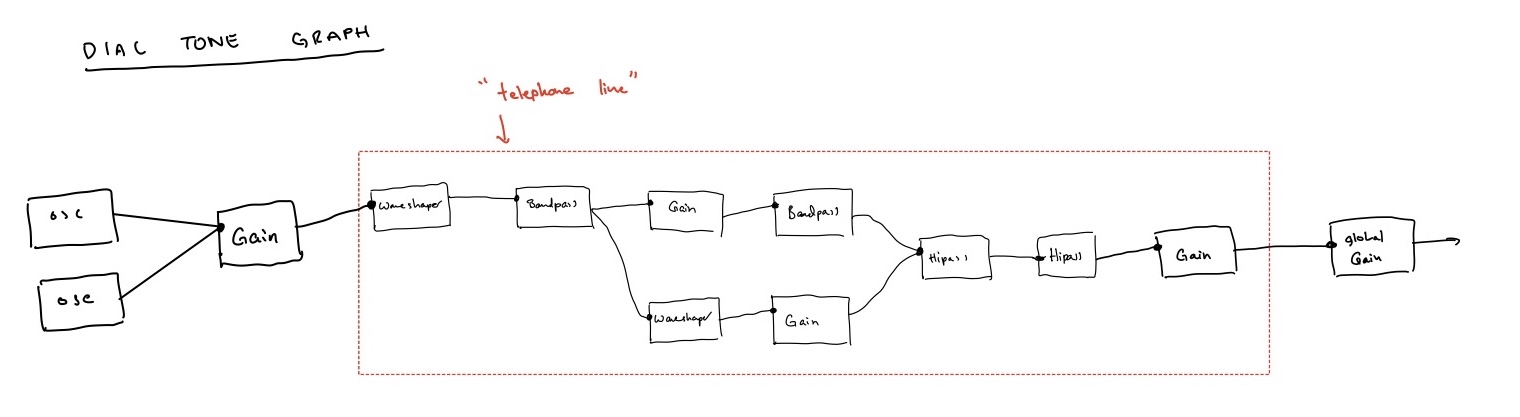 DIAL TONE GRAPH
"telephone line"
osc
osc
Gain
Waveshaper
Bandpass
Gain
Bandpass
Waveshaper
Gain
Hipass
Hipass
Gain
global
Gain